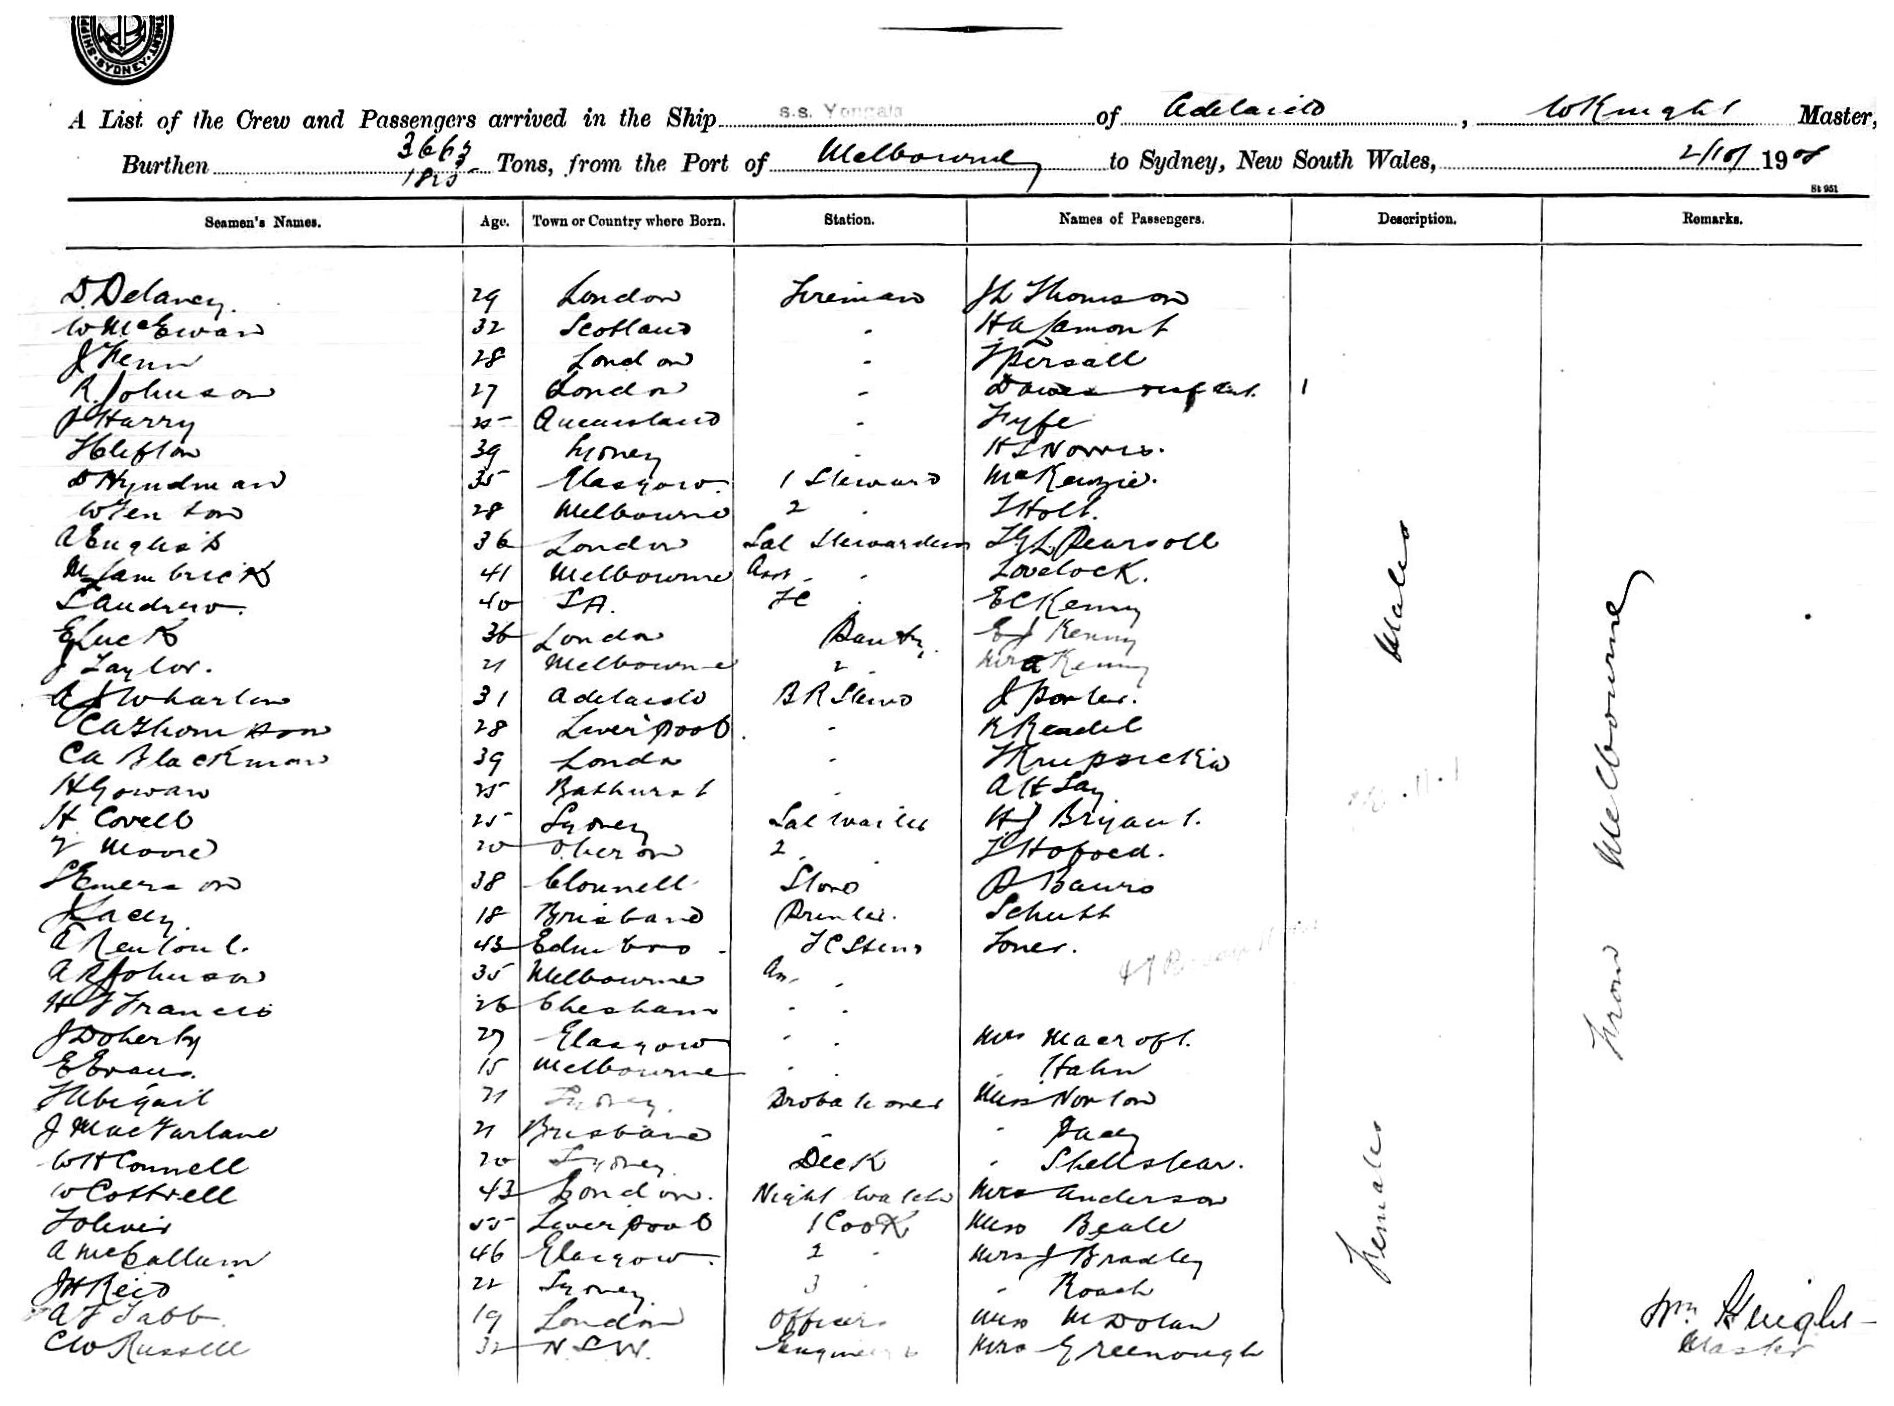 SYDNEY
A List of the Crew and Passengers arrived in the Ship s.s. Yongala of Adelaide, W Knight Master,
Burthen 3663 Tons, from the Port of Melbourne to Sydney, New South Wales, 2/10/ 1908
1825
St 951
Seamen's Names. Age. Town or Country where Born. Station. Names of Passengers. Description. Remarks.
D. Delaney. 29 London Fireman J L Thomson
W McEwan 32 Scotland - H A Lamont
J Fenn 28 London - T Persall
R. Johnson 27 London - Dawes infant. 1
P Harry 25 Queensland - Fyfe
F Clifton 39 Sydney - H S Norris.
D Hyndman 35 Glasgow. 1 Steward McKenzie.
W Fenton 28 Melbourne 2 . T Holt.
A English 36 London Sal Stewardess T G L Pearsoll
M Lambrick 41 Melbourne Asst . . Lovelock.
S Andrew. 40 S A. FC . E C Kenny
E Luck 36 London Pantry. E J Kenny
J Taylor. 21 Melbourne 2 . Mr A Kenny
A J Wharton 31 Adelaide B R Stewd J Porter.
C A Thompson 28 Liverpool - R Readel
C A Blackman 39 London -
H Gowan 25 Bathurst - A H Lay
H Covell 25 Sydney Sal Waiter H J Bryant.
T Moore 20 Oberon 2 .
S Emerson 38 Clonnell Stores
J Lacey 18 Brisbane Printer. Schutt
A Rentoul. 43 Edinboro - FC Stewd Toner.
A R Johnson 35 Melbourne As. .
H T Francis 26 Chesham - .
J Doherty 27 Glasgow - . Mrs Macroft.
E Evans. 15 Melbourne - . . Hahn
F Abigail 21 Sydney. Probationer Miss Norton
J MacFarlane 21 Brisbane - - Pacey
W H Connell 20 Sydney. Deck . Shellshear.
W Cottrell 43 London. Night Watch Mrs Anderson
T Oliver 55 Liverpool 1 Cook Miss Beale
A McCallum 46 Glasgow. 2 . Mrs J Bradley
J H Reid 22 Sydney. 3 . . Roach
A F Tabb 19 London Officers Miss M Dolan
C W Russell 32 N.S.W. Engineers Mrs Greenough
Males
Females
From Melbourne
Wm Knight
Master